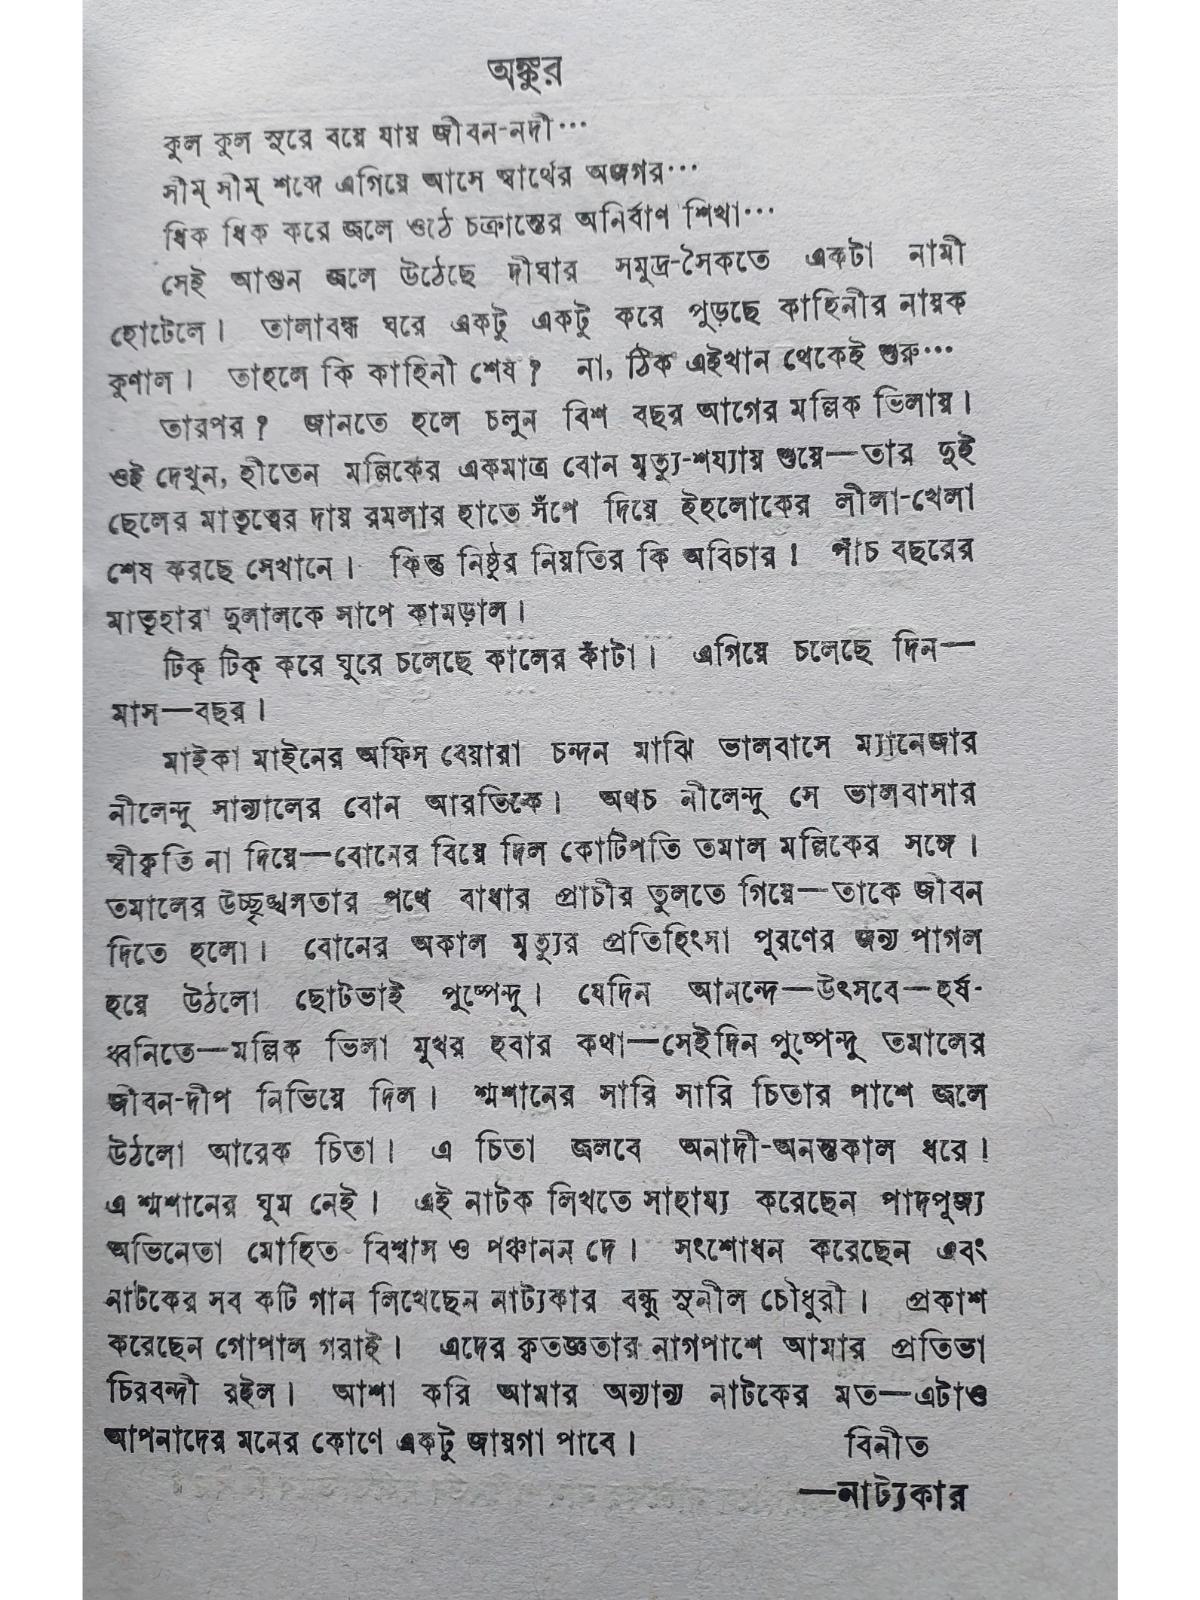 অঙ্কুর
কুল কুল সুরে বয়ে যায় জীবন-নদী···
সীম্ সীম্ শব্দে এগিয়ে আসে স্বার্থের অজগর···
ধিক ধিক করে জ্বলে ওঠে চক্রান্তের অনির্বাণ শিখা···
সেই আগুন জ্বলে উঠেছে দীঘার সমুদ্র-সৈকতে একটা নামী
হোটেলে। তালাবন্ধ ঘরে একটু একটু করে পুড়ছে কাহিনীর নায়ক
কুণাল। তাহলে কি কাহিনী শেষ? না, ঠিক এইখান থেকেই শুরু···
তারপর? জানতে হলে চলুন বিশ বছর আগের মল্লিক ভিলায়।
ওই দেখুন, হীতেন মল্লিকের একমাত্র বোন মৃত্যু-শয্যায় শুয়ে—তার দুই
ছেলের মাতৃত্বের দায় রমলার হাতে সঁপে দিয়ে ইহলোকের লীলা-খেলা
শেষ করছে সেখানে। কিন্তু নিষ্ঠুর নিয়তির কি অবিচার। পাঁচ বছরের
মাতৃহারা দুলালকে সাপে কামড়াল।
টিক্ টিক্ করে ঘুরে চলেছে কালের কাঁটা। এগিয়ে চলেছে দিন—
মাস—বছর।
মাইকা মাইনের অফিস বেয়ারা চন্দন মাঝি ভালবাসে ম্যানেজার
নীলেন্দু সান্যালের বোন আরতিকে। অথচ নীলেন্দু সে ভালবাসার
স্বীকৃতি না দিয়ে—বোনের বিয়ে দিল কোটিপতি তমাল মল্লিকের সঙ্গে।
তমালের উচ্ছৃঙ্খলতার পথে বাধার প্রাচীর তুলতে গিয়ে—তাকে জীবন
দিতে হলো। বোনের অকাল মৃত্যুর প্রতিহিংসা পূরণের জন্য পাগল
হয়ে উঠলো ছোটভাই পুষ্পেন্দু। যেদিন আনন্দে—উৎসবে—হর্ষ-
ধ্বনিতে—মল্লিক ভিলা মুখর হবার কথা—সেইদিন পুষ্পেন্দু তমালের
জীবন-দীপ নিভিয়ে দিল। শ্মশানের সারি সারি চিতার পাশে জ্বলে
উঠলো আরেক চিতা। এ চিতা জ্বলবে অনাদী-অনন্তকাল ধরে।
এ শ্মশানের ঘুম নেই। এই নাটক লিখতে সাহায্য করেছেন পাদপূজ্য
অভিনেতা মোহিত বিশ্বাস ও পঞ্চানন দে। সংশোধন করেছেন এবং
নাটকের সব কটি গান লিখেছেন নাট্যকার বন্ধু সুনীল চৌধুরী। প্রকাশ
করেছেন গোপাল গরাই। এদের কৃতজ্ঞতার নাগপাশে আমার প্রতিভা
চিরবন্দী রইল। আশা করি আমার অন্যান্য নাটকের মত—এটাও
আপনাদের মনের কোণে একটু জায়গা পাবে।
বিনীত
—নাট্যকার